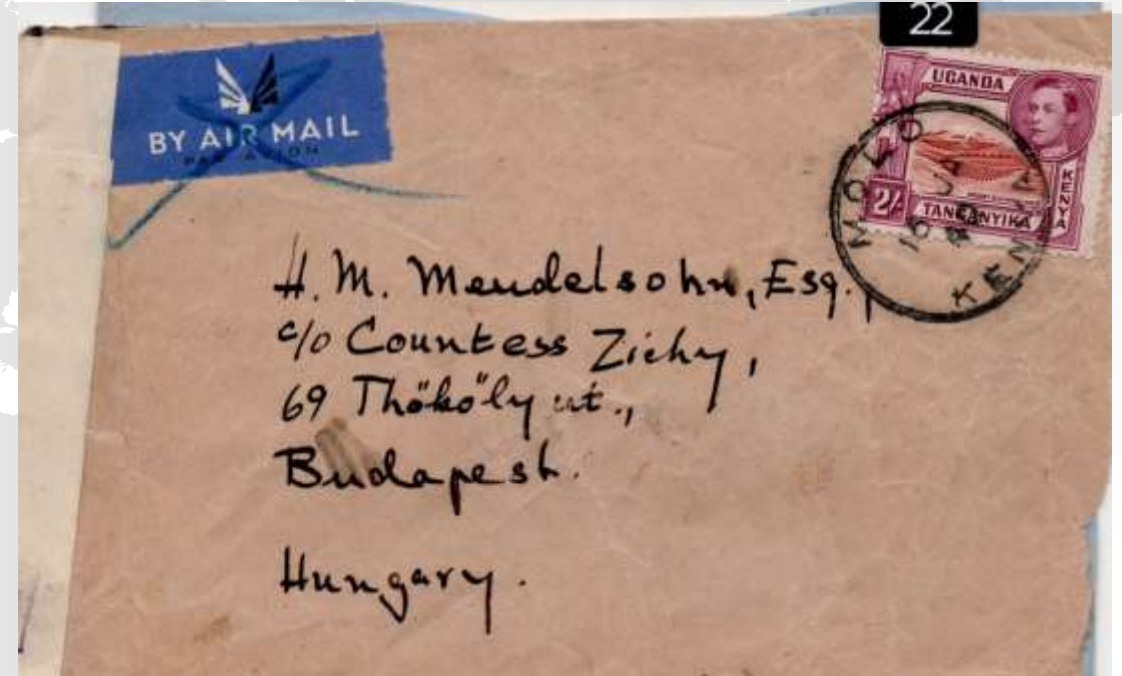 22
BY AIR MAIL
PAR AVION
UGANDA
KENYA
2/-
TANGANYIKA
MOLO
KENYA
H. M. Mendelsohn, Esq.,
c/o Countess Zichy,
69 Thököly út.,
Budapest.
Hungary.